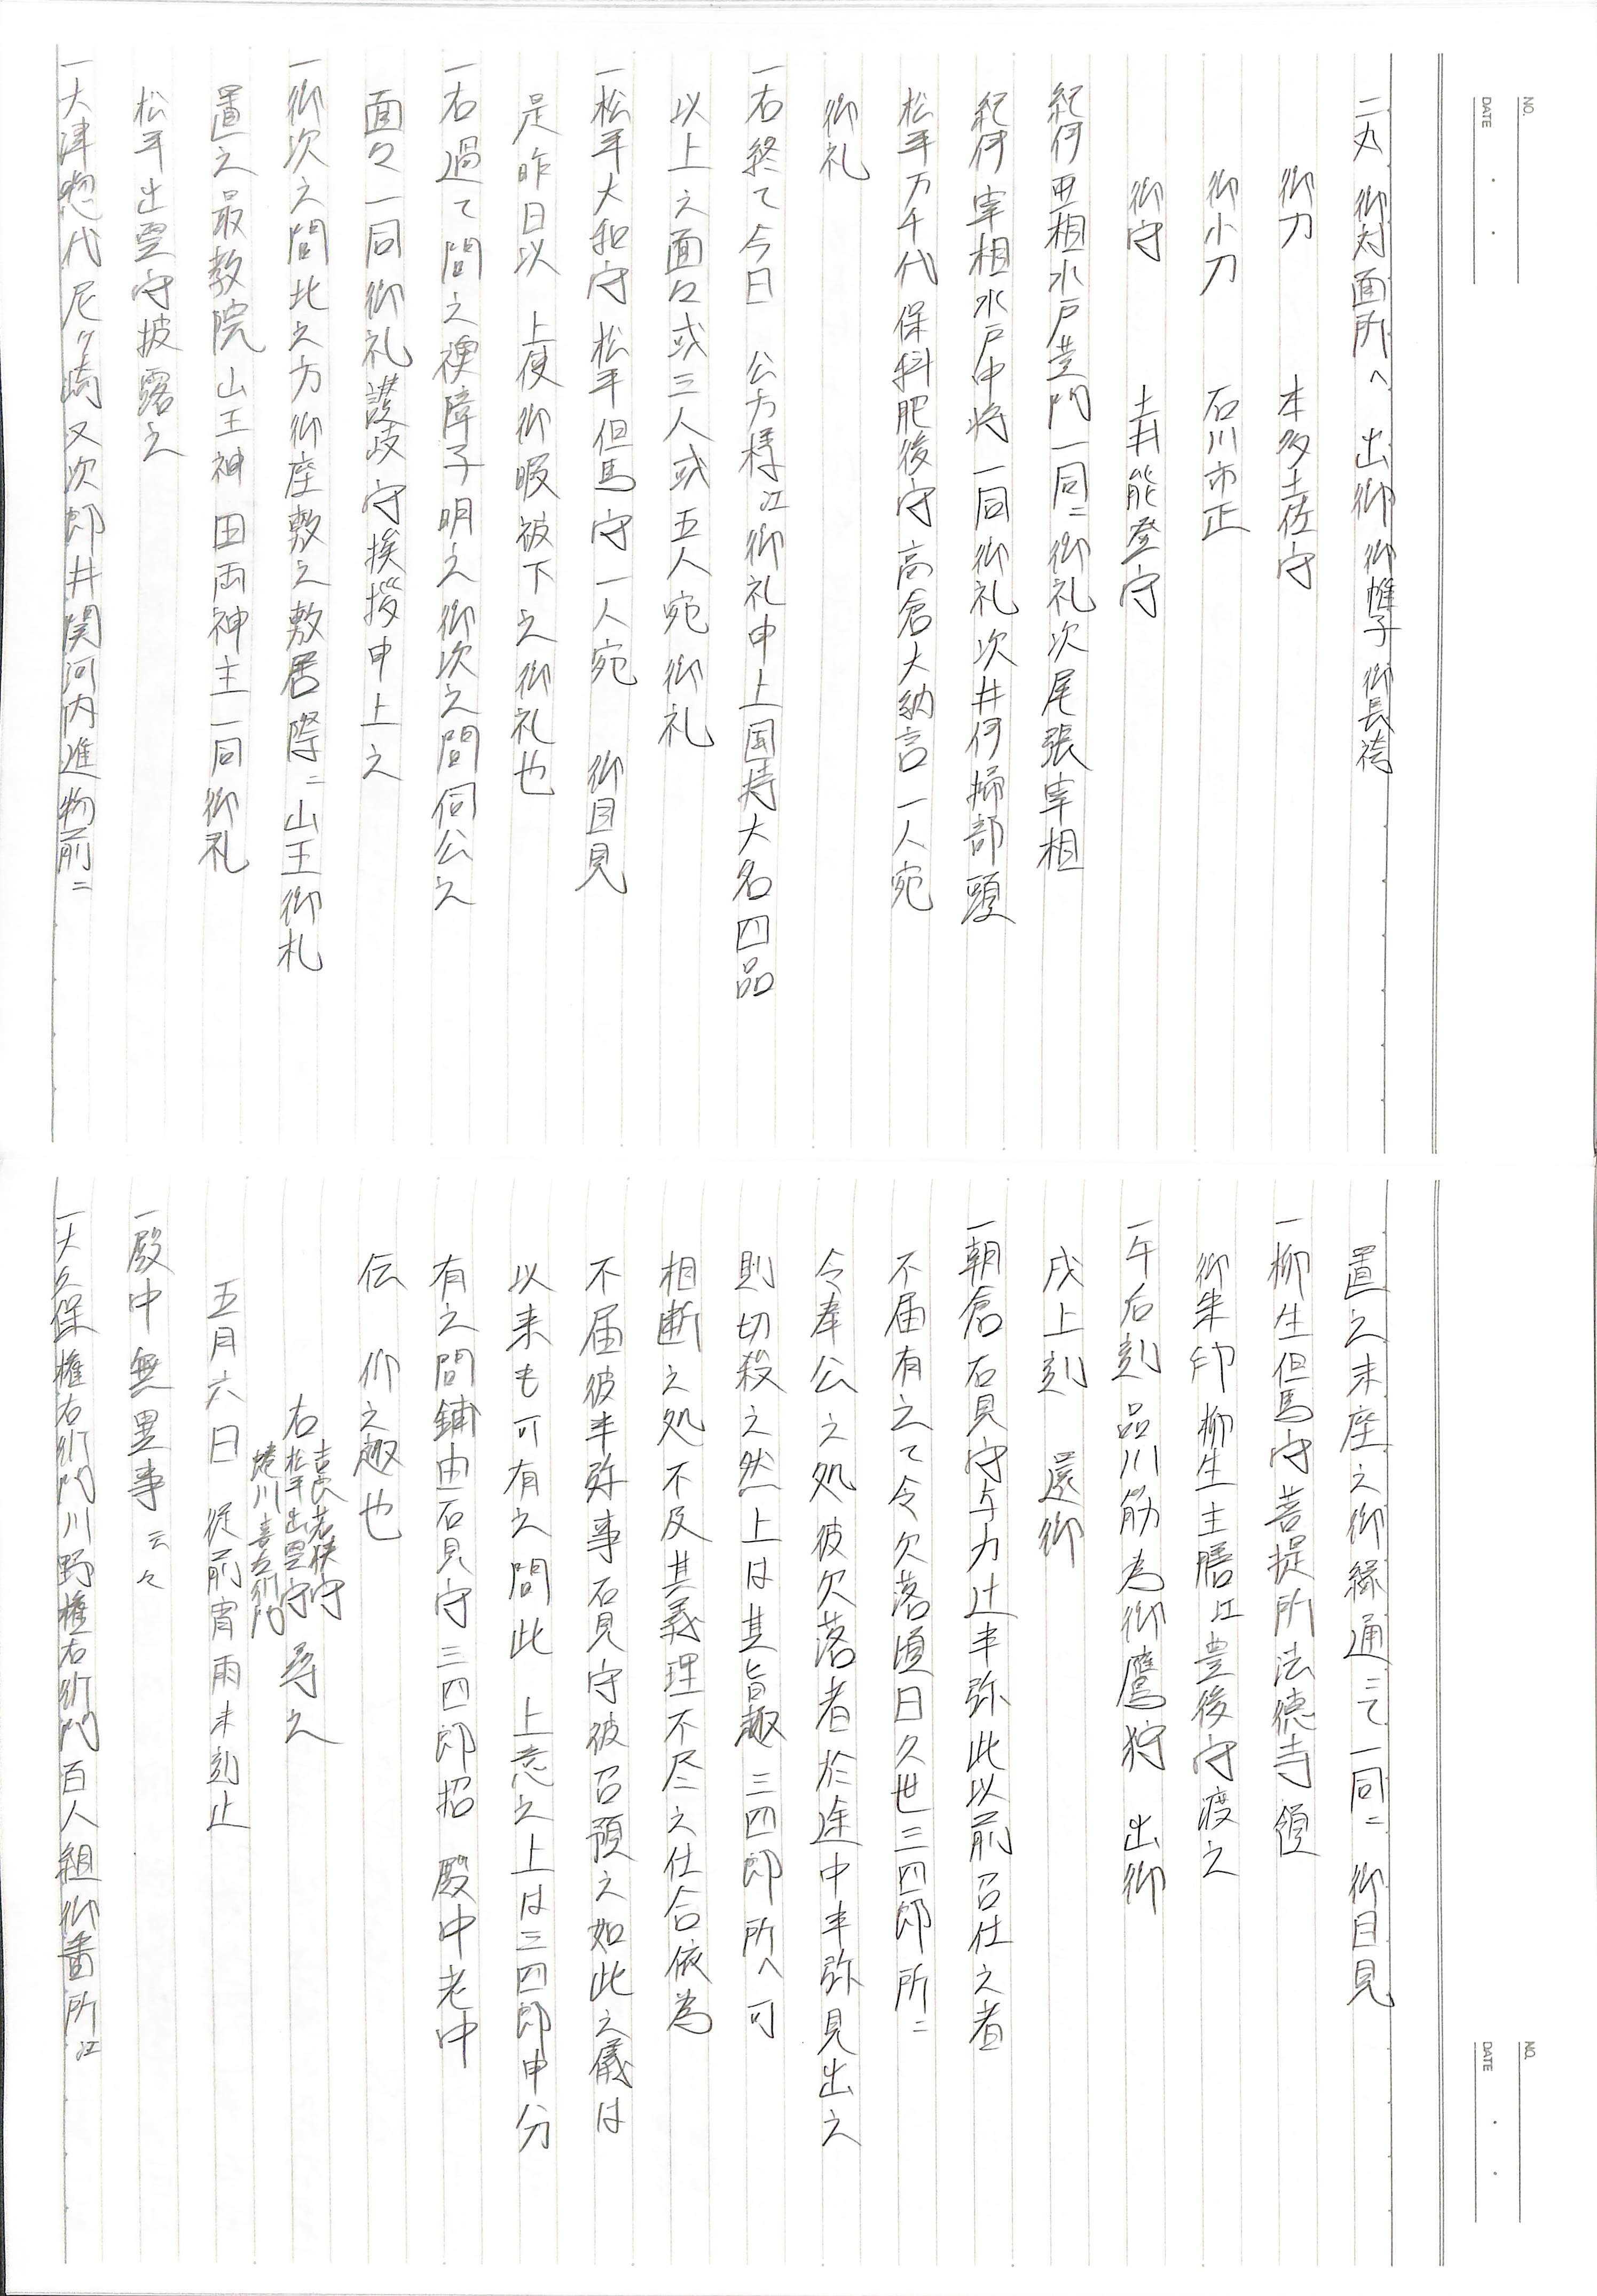 二丸　御対面所へ　出御　御帷子　御長袴
御刀　本多土佐守
御小刀　石川市正
御守　土井能登守
紀伊亜相水戸黄門一同ニ御礼次尾張宰相
紀伊宰相水戸中将一同御礼次井伊掃部頭
松平万千代　保科肥後守　高倉大納言　一人宛
御礼
一右終て今日　公方様江御礼申上国持大名四品
以上之面々或三人或五人宛御礼
一松平大和守　松平但馬守　一人宛　御目見
是昨日以　上使御暇被下之御礼也
一右過て間之襖障子明之御次之間伺公之
面々一同御礼讃岐守挨拶申上之
一御次之間北之方御座敷之敷居際ニ山王御札
置之最教院　山王神田両神主一同御礼
松平出雲守披露之
一大津惣代尼ヶ崎又次郎井関河内進物前ニ
置之末座之御縁通ニて一同ニ　御目見
一柳生但馬守菩提所法徳寺領
御朱印　柳生主膳江豊後守渡之
一午后刻　品川筋為御鷹狩　出御
戌上刻　還御
一朝倉石見守与力辻半弥此以前召仕之者
不届有之て令欠落頃日久世三四郎所ニ
令奉公之処彼欠落者於途中半弥見出之
則切殺之然上は其旨趣三四郎所へ可
相断之処不及其義理不尽之仕合依為
不届彼半弥事石見守彼召預之如此之儀は
以来も可有之間此　上意之上は三四郎申分
有之間鋪由石見守三四郎招　殿中老中
伝　仰之趣也
右　吉良若狭守　松平出雲守　蜷川喜左衛門　尋之
五月六日　従前宵雨未刻止
一殿中無異事云々
一大久保権右衛門川野権右衛門百人組御番所江